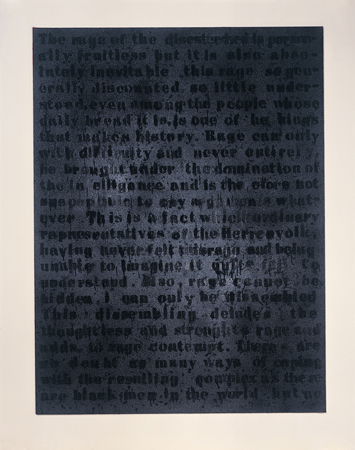 The rage of the disesteemed is person-
ally fruitless but it is also abso-
lutely inevitable this rage so gen-
erally discounted, so little under-
stood, even among the people whose
daily bread it is, is one of he hings
that makes history. Rage can only
with difficulty and never entirely
be brought under the domination of
the in elligence and is the efore not
susceptible to any what-
ever. This is a fact which ordinary
representatives of the Herrenvolk,
having never felt this rage and being
unable to imagine it quite to
understand. Also, rage cannot be
hidden, I can only be dissembled
This dissembling deludes the
thoughtless and strenghts rage and
adds, to rage contempt. There are
no doubt as many ways of coping
with the resulting complex as there
are black men in the world, but no